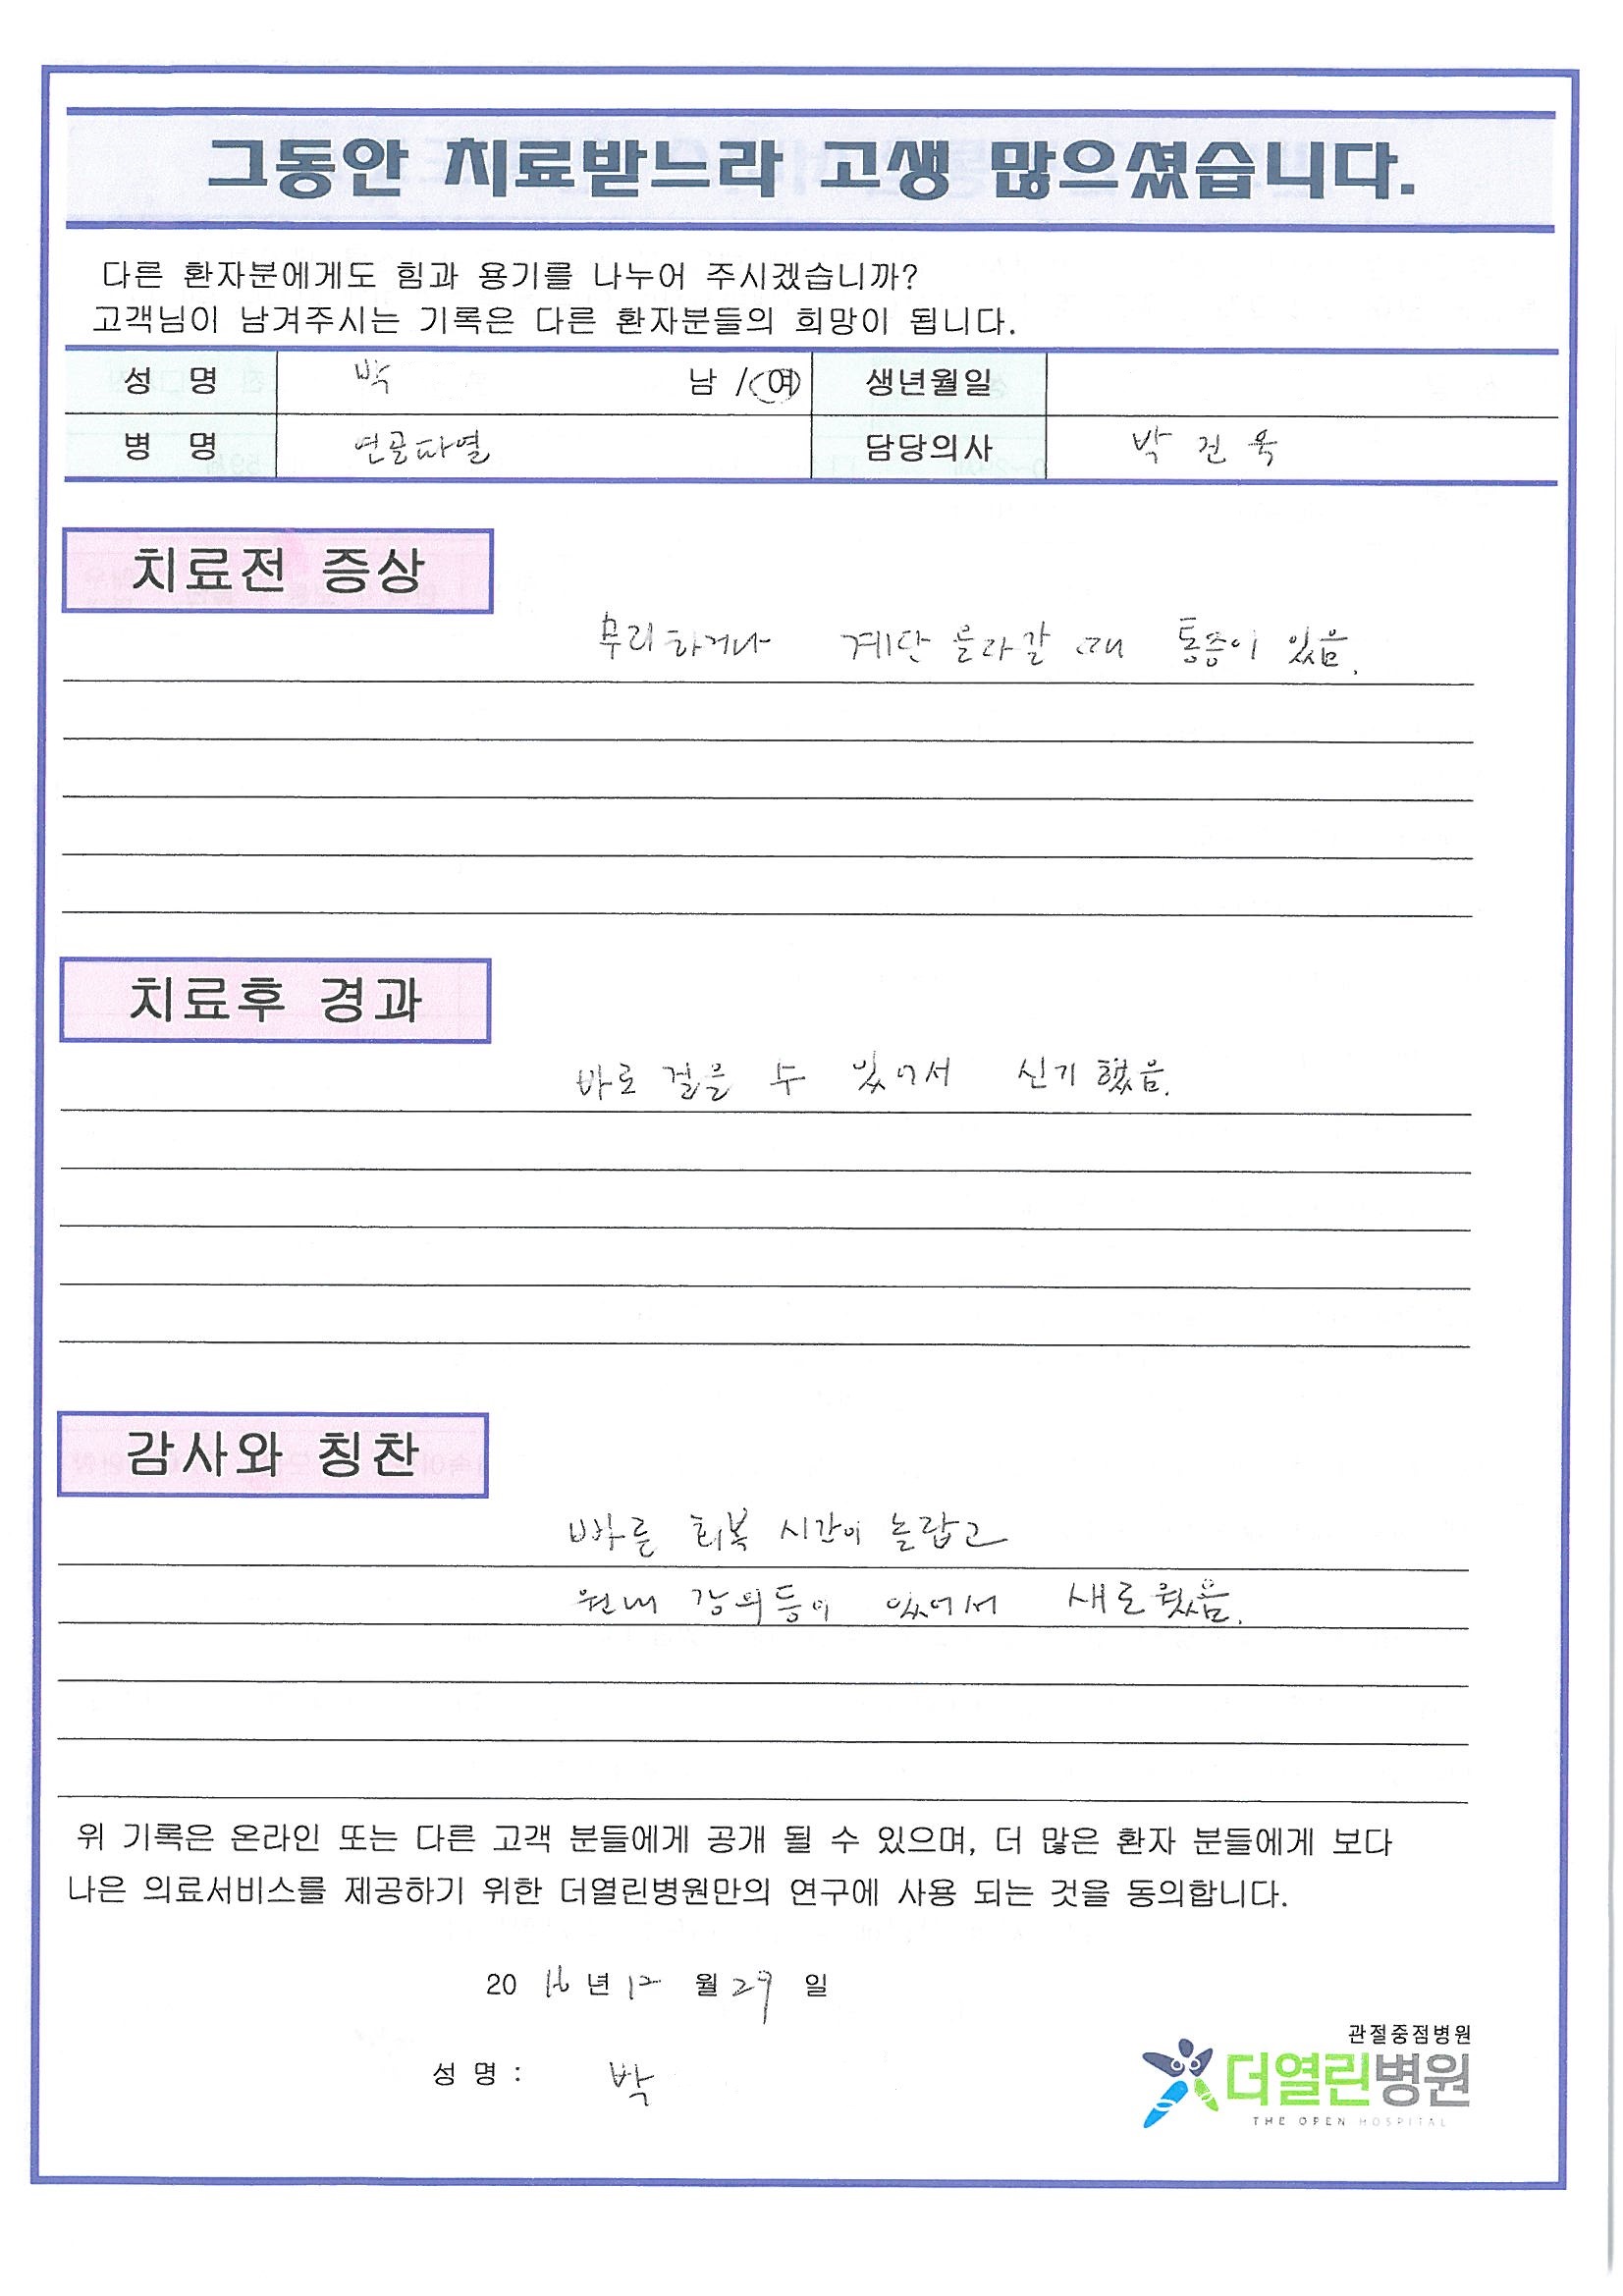 그동안 치료받느라 고생 많으셨습니다.
다른 환자분에게도 힘과 용기를 나누어 주시겠습니까?
고객님이 남겨주시는 기록은 다른 환자분들의 희망이 됩니다.
성 명 박 남 / 여 생년월일
병 명 연골파열 담당의사 박 건 욱
치료전 증상
무리하거나 계단 올라갈 때 통증이 있음.
치료후 경과
바로 걸을 수 있어서 신기했음.
감사와 칭찬
빠른 회복 시간이 놀랍고
원내 강의등이 있어서 새로웠음.
위 기록은 온라인 또는 다른 고객 분들에게 공개 될 수 있으며, 더 많은 환자 분들에게 보다
나은 의료서비스를 제공하기 위한 더열린병원만의 연구에 사용 되는 것을 동의합니다.
20 16 년 12 월 29 일
관절중점병원
성 명 : 박
더열린병원
THE OPEN HOSPITAL